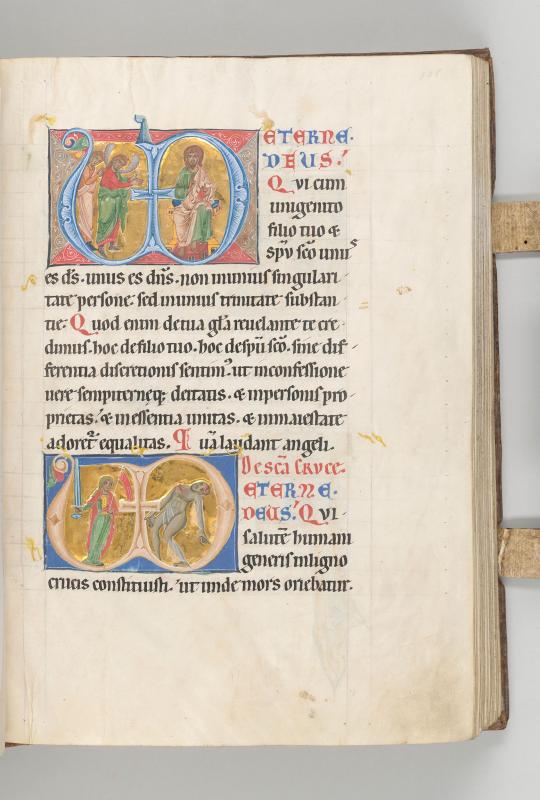 ETERNE
DEUS.
Qui cum
unigenito
filio tuo &
spū sc̄o unus
es ds̄. unus es dn̄s. non in unius singulari
tate persone. sed in unius trinitate substan
tie. Quod enim de tua gl̄a reuelante te cre
dimus. hoc de filio tuo. hoc de spū sc̄o. sine dif
ferentia discretionis sentim᷒. ut in confessione
uere sempiterneq; deitatis. & in personis pro
prietas. & in essentia unitas. & in maiestate
adoret᷒ equalitas. Quā laudant angeli.
De sc̄a cruce.
ETERNE
DEUS. Qui
salutē humani
generis in ligno
crucis constituisti. ut unde mors oriebatur.